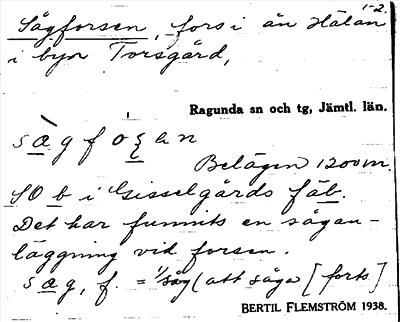 1-2.
Sågforsen, fors i ån Hälån
i byn Torsgård,
Ragunda sn och tg, Jämtl. län.
sægfoṣen
Belägen 1200 m.
SO b i Gisselgårds fäb.
Det har funnits en sågan-
läggning vid forsen.
sæg, f. = såg (att såga [forts]
BERTIL FLEMSTRÖM 1938.